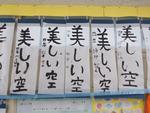 美しい空
美しい空
美しい空
美しい空
美しい空